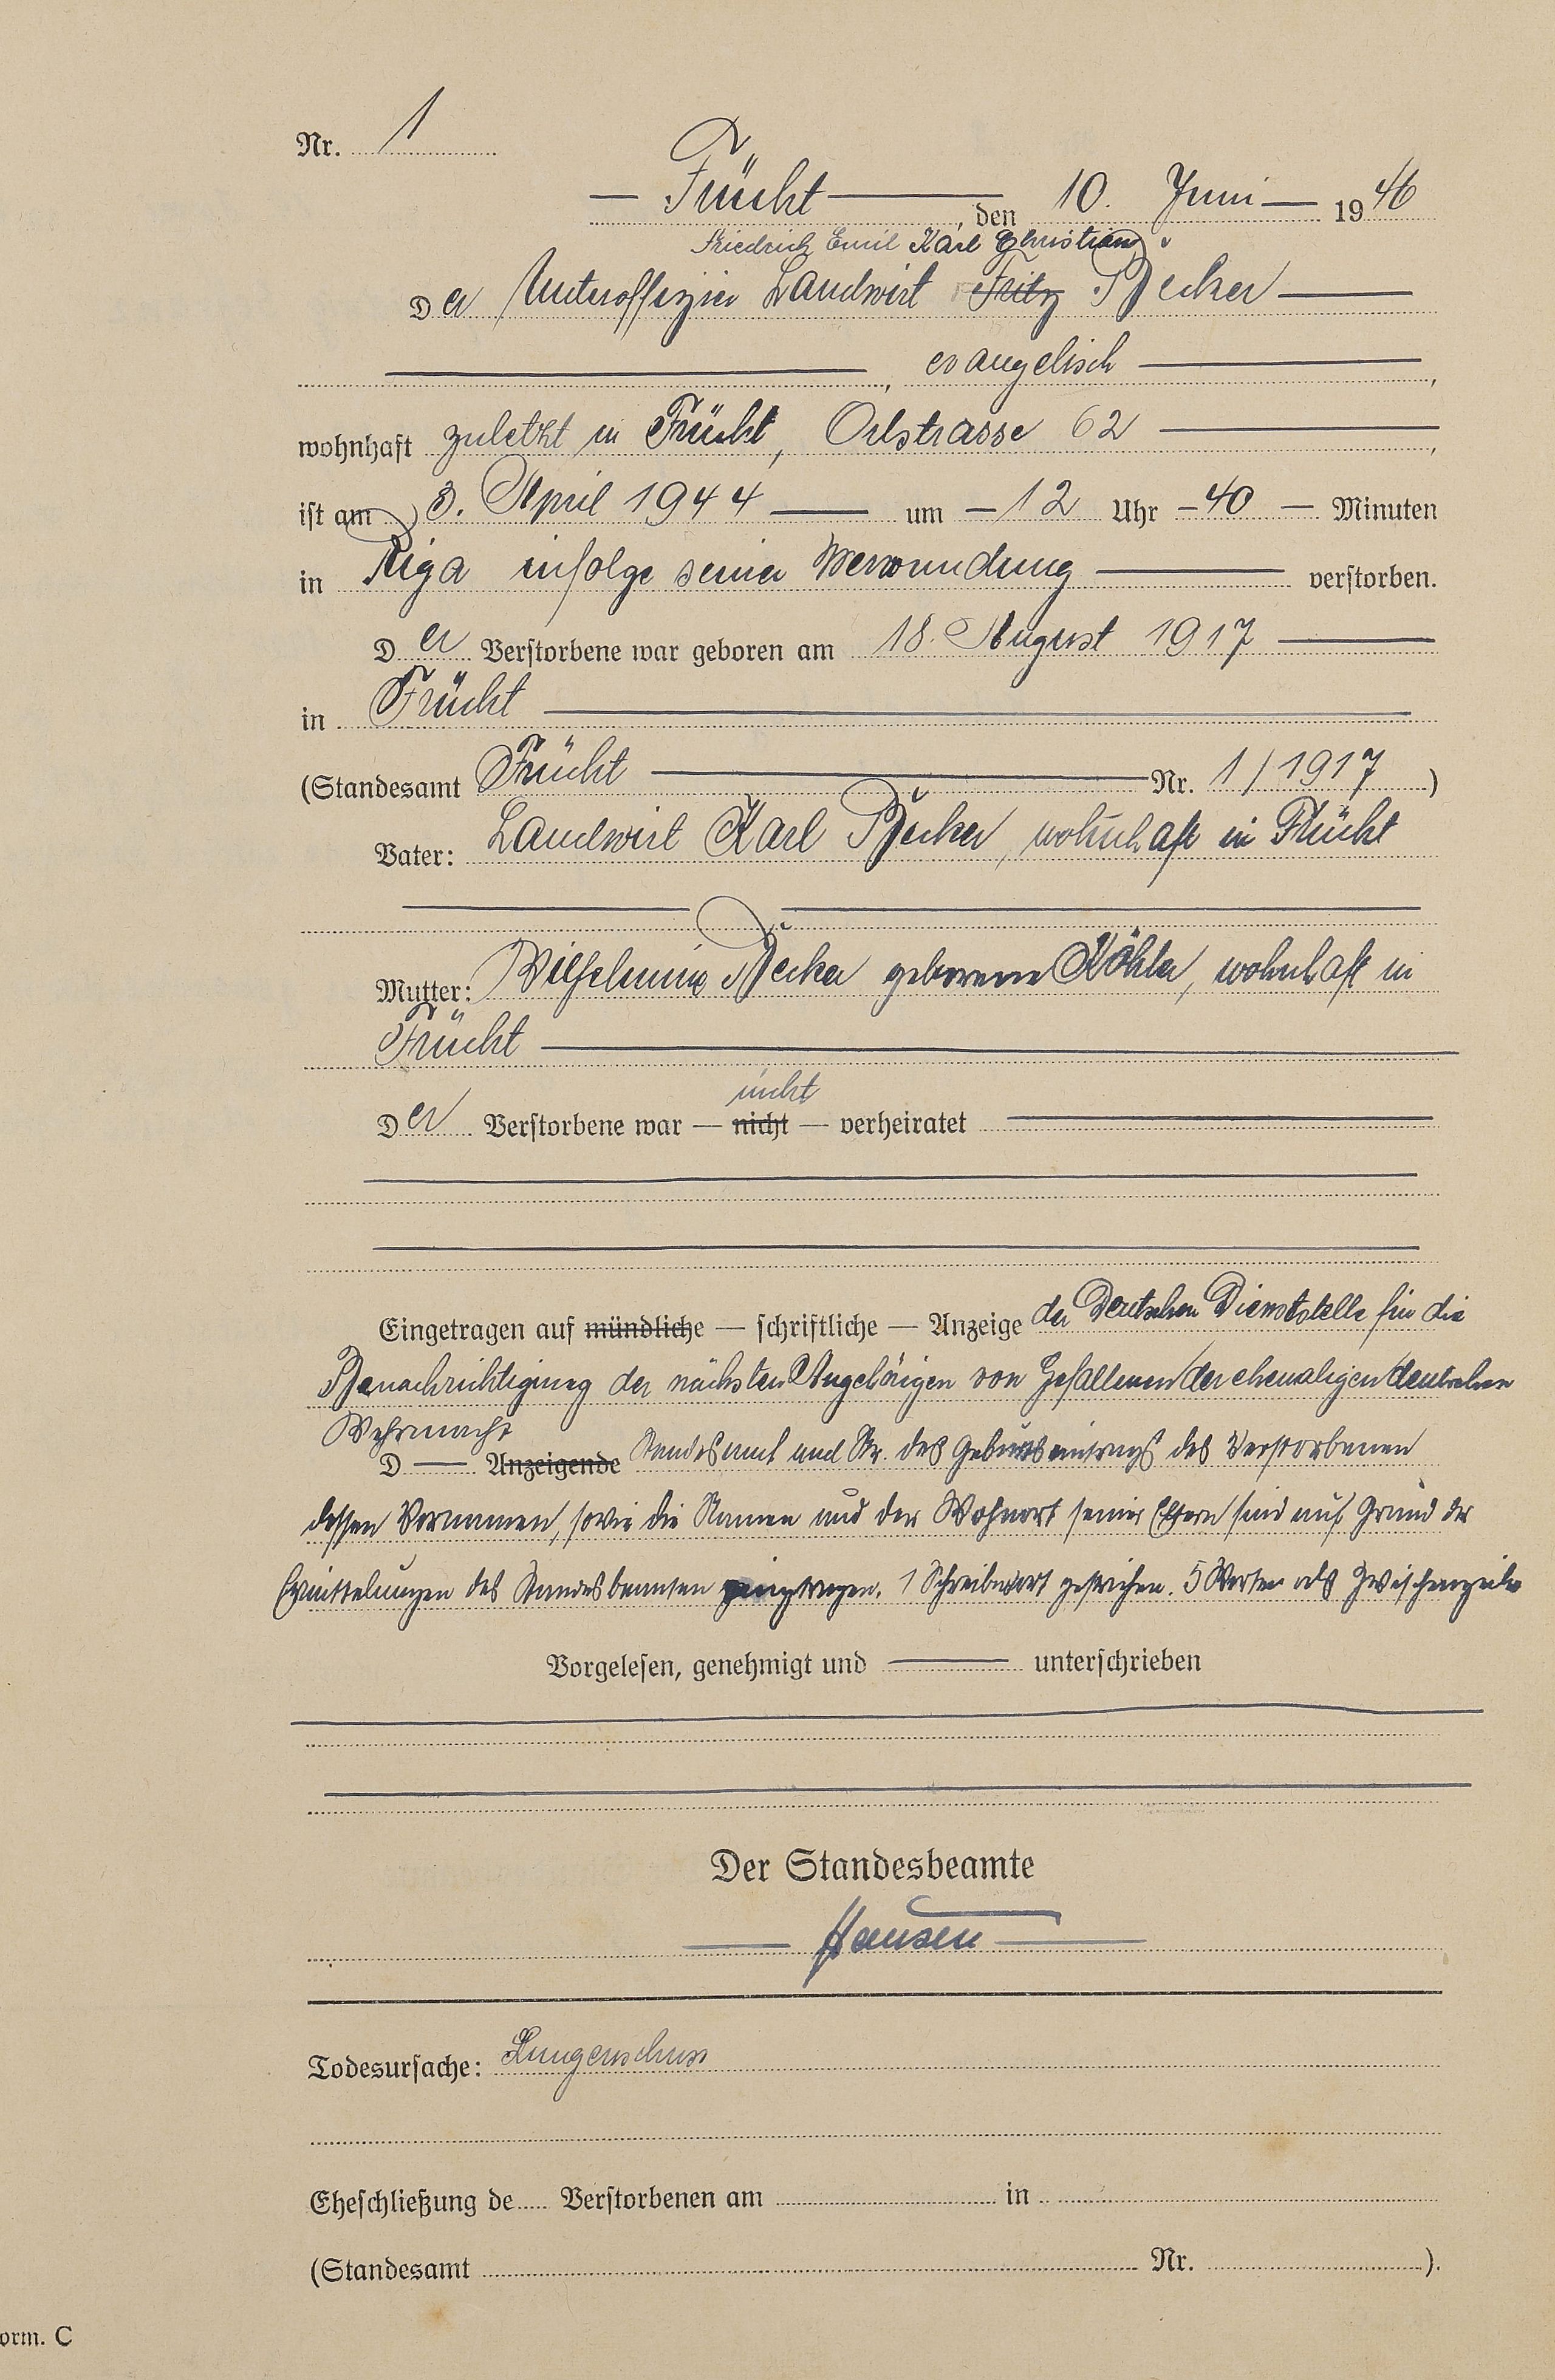 Nr. 1
— Frücht —, den 10. Juni — 1946
Friedrich Emil Karl Christian
Der Unteroffizier Landwirt Fritz Becker —
—, evangelisch —,
wohnhaft zuletzt in Frücht, Ortstrasse 62 —,
ist am 3. April 1944 — um — 12 Uhr — 40 — Minuten
in Riga infolge seiner Verwundung — verstorben.
Der Verstorbene war geboren am 18. August 1917 —
in Frücht —
(Standesamt Frücht — Nr. 1/1917)
Vater: Landwirt Karl Becker, wohnhaft in Frücht
Mutter: Wilhelmine Becker geborene Köhler, wohnhaft in
Frücht —
nicht
Der Verstorbene war — nicht — verheiratet —
Eingetragen auf mündliche — schriftliche — Anzeige der Deutschen Dienststelle für die
Benachrichtigung der nächsten Angehörigen von Gefallenen der ehemaligen deutschen
Wehrmacht
D — Anzeigende Standesamt und Nr. des Geburtseintrags des Verstorbenen
dessen Vornamen, sowie die Namen und der Wohnort seiner Eltern sind auf Grund der
Ermittelungen des Standesbeamten eingetragen. 1 Schreibwort gestrichen. 5 Worte als Zwischenzeile
Vorgelesen, genehmigt und — unterschrieben
Der Standesbeamte
— Hansen —
Todesursache: Lungenschuss
Eheschließung de Verstorbenen am in
(Standesamt Nr. ).
orm. C